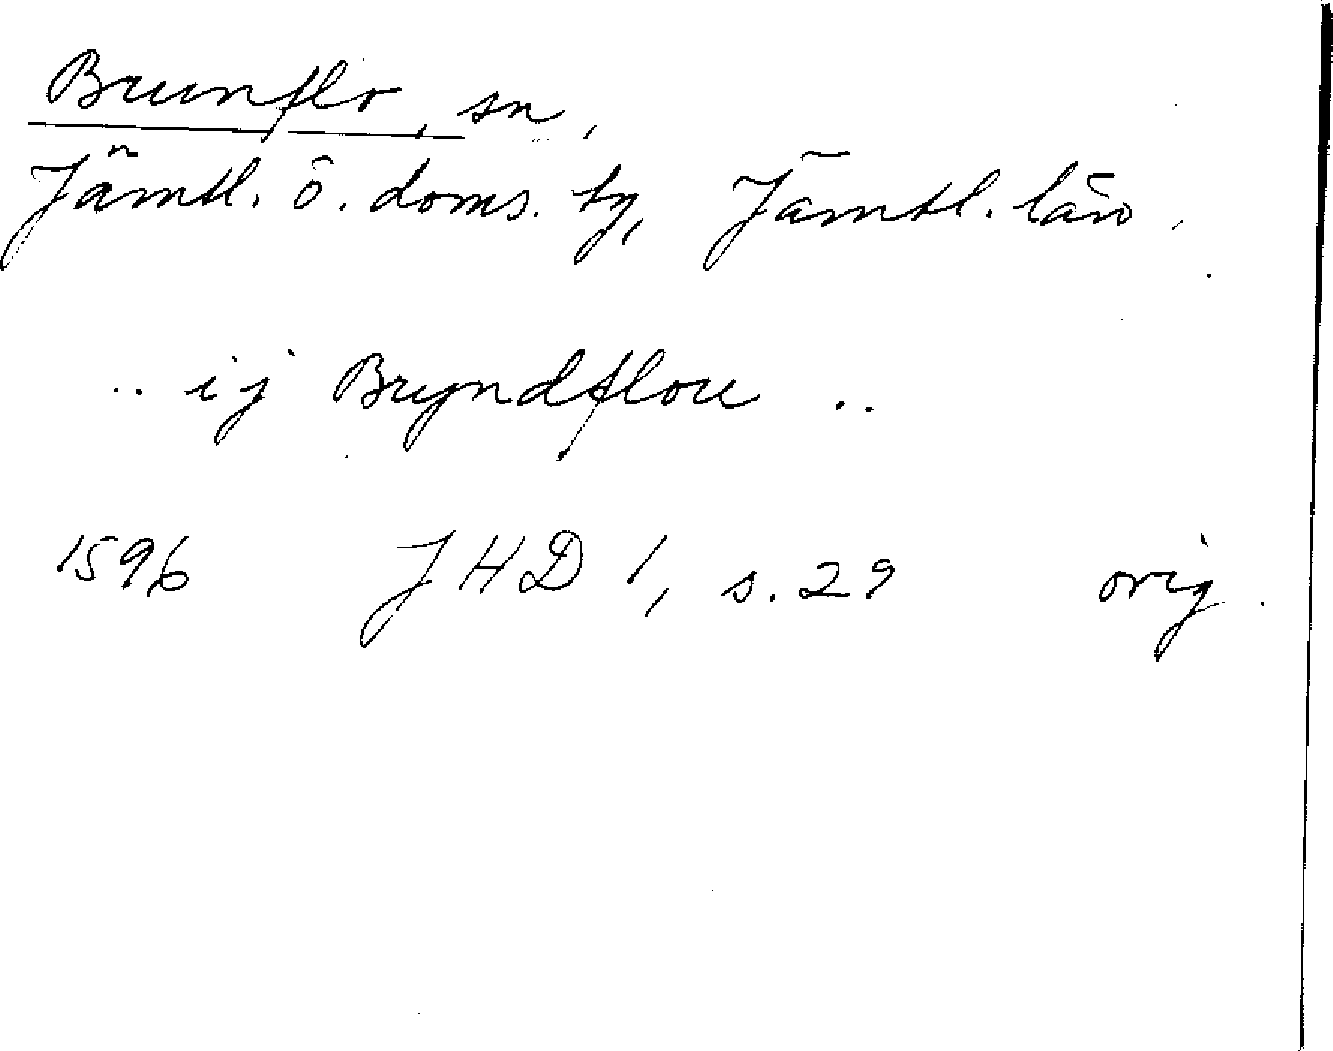 Brunflo, sn,
Jämtl. ö. doms. tg, Jämtl. län.
.. ij Bryndflou ..
1596 JHD 1, s. 29 orig.